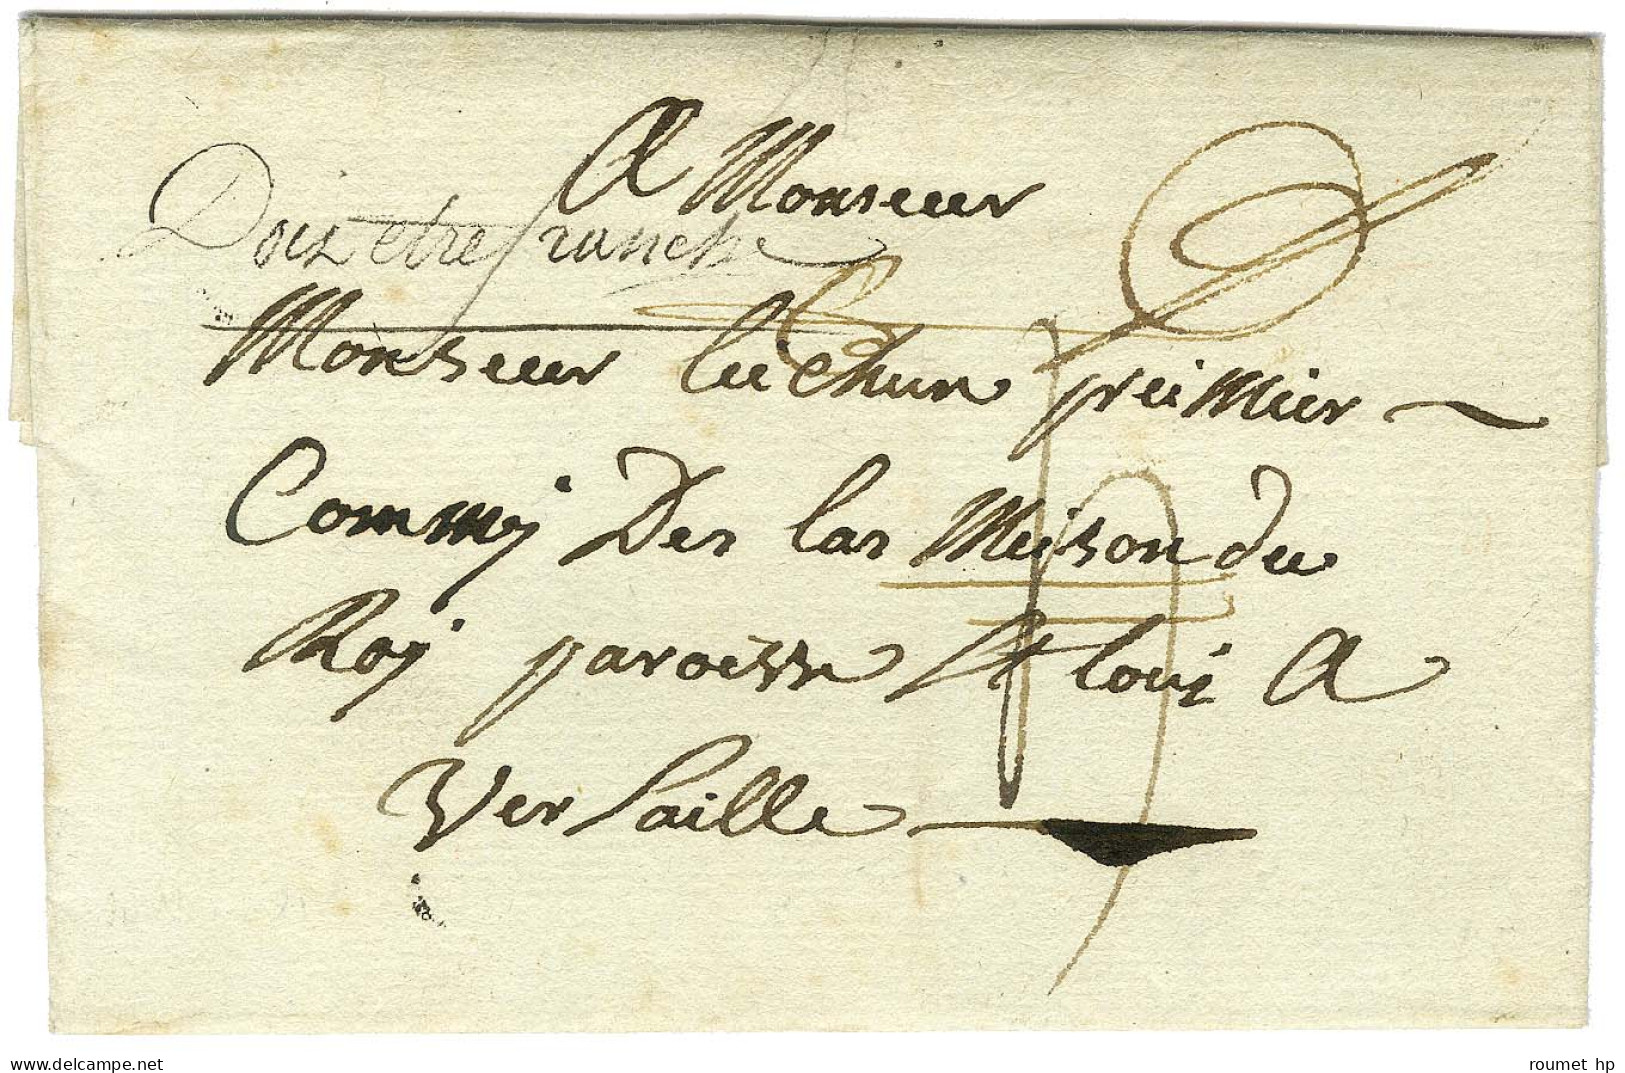 A Monsieur
Doit etre franche
Monsieur lechun preimier
Commij De la Meison du
Roy paroisse St loui A
Versaille
delcampe.net
roumet hp